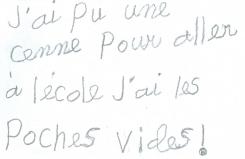 J'ai pu une
cenne pour aller
à l'école J'ai les
Poches vides!